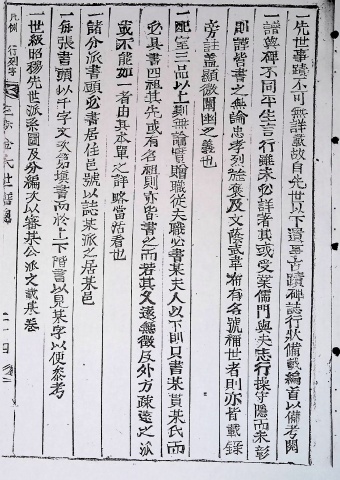 一先世事蹟不可無詳載故自先世以下遺事言蹟碑誌行狀備載編首以備考閱
譜與碑不同平生言行雖未必詳著其或受業儒門與夫志行操守隱而未彰
則詳皆書之無論忠孝烈㫌褒及文蔭武韋布有名號稱世者則亦皆載錄
旁註盖顯微闡幽之義也
一配室三品以上則無論實贈職從夫職必書某夫人以下則只書某貫某氏而
必具書四祖其先或有名祖則亦皆書之而若其久遠無徵及外方疎遠之派
或不能如一者由其單之詳略當活看也
諸分派書頭必書居住邑號以誌某派之居某邑
一每張書頭以千字文次第塡書而於上下階言以見某字以便參考
一世級昭穆先世派系圖及分編次以審某公派之載某卷
凡例 行列字